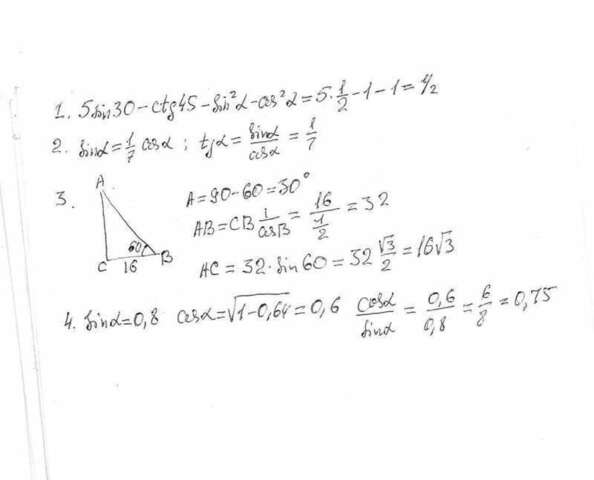 1. 5sin30-ctg45-sin²α-cos²α=5·1/2-1-1=1/2
2. sinα=1/7 cosα; tgα=sinα/cosα=1/7
3. A
A=90-60=30°
AB=CB 1/cosB=16/(1/2)=32
60
C 16 B
AC=32·sin60=32 √3/2=16√3
4. sinα=0,8 cosα=√(1-0,64)=0,6 cosα/sinα=0,6/0,8=6/8=0,75